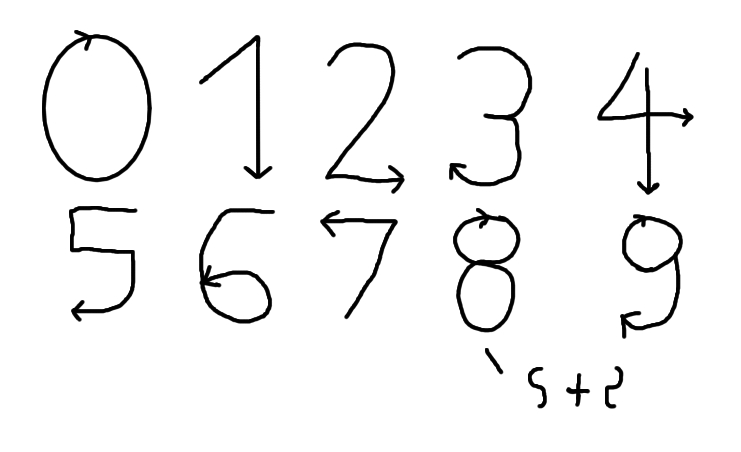 0 1 2 3 4
5 6 7 8 9
S + Ƨ